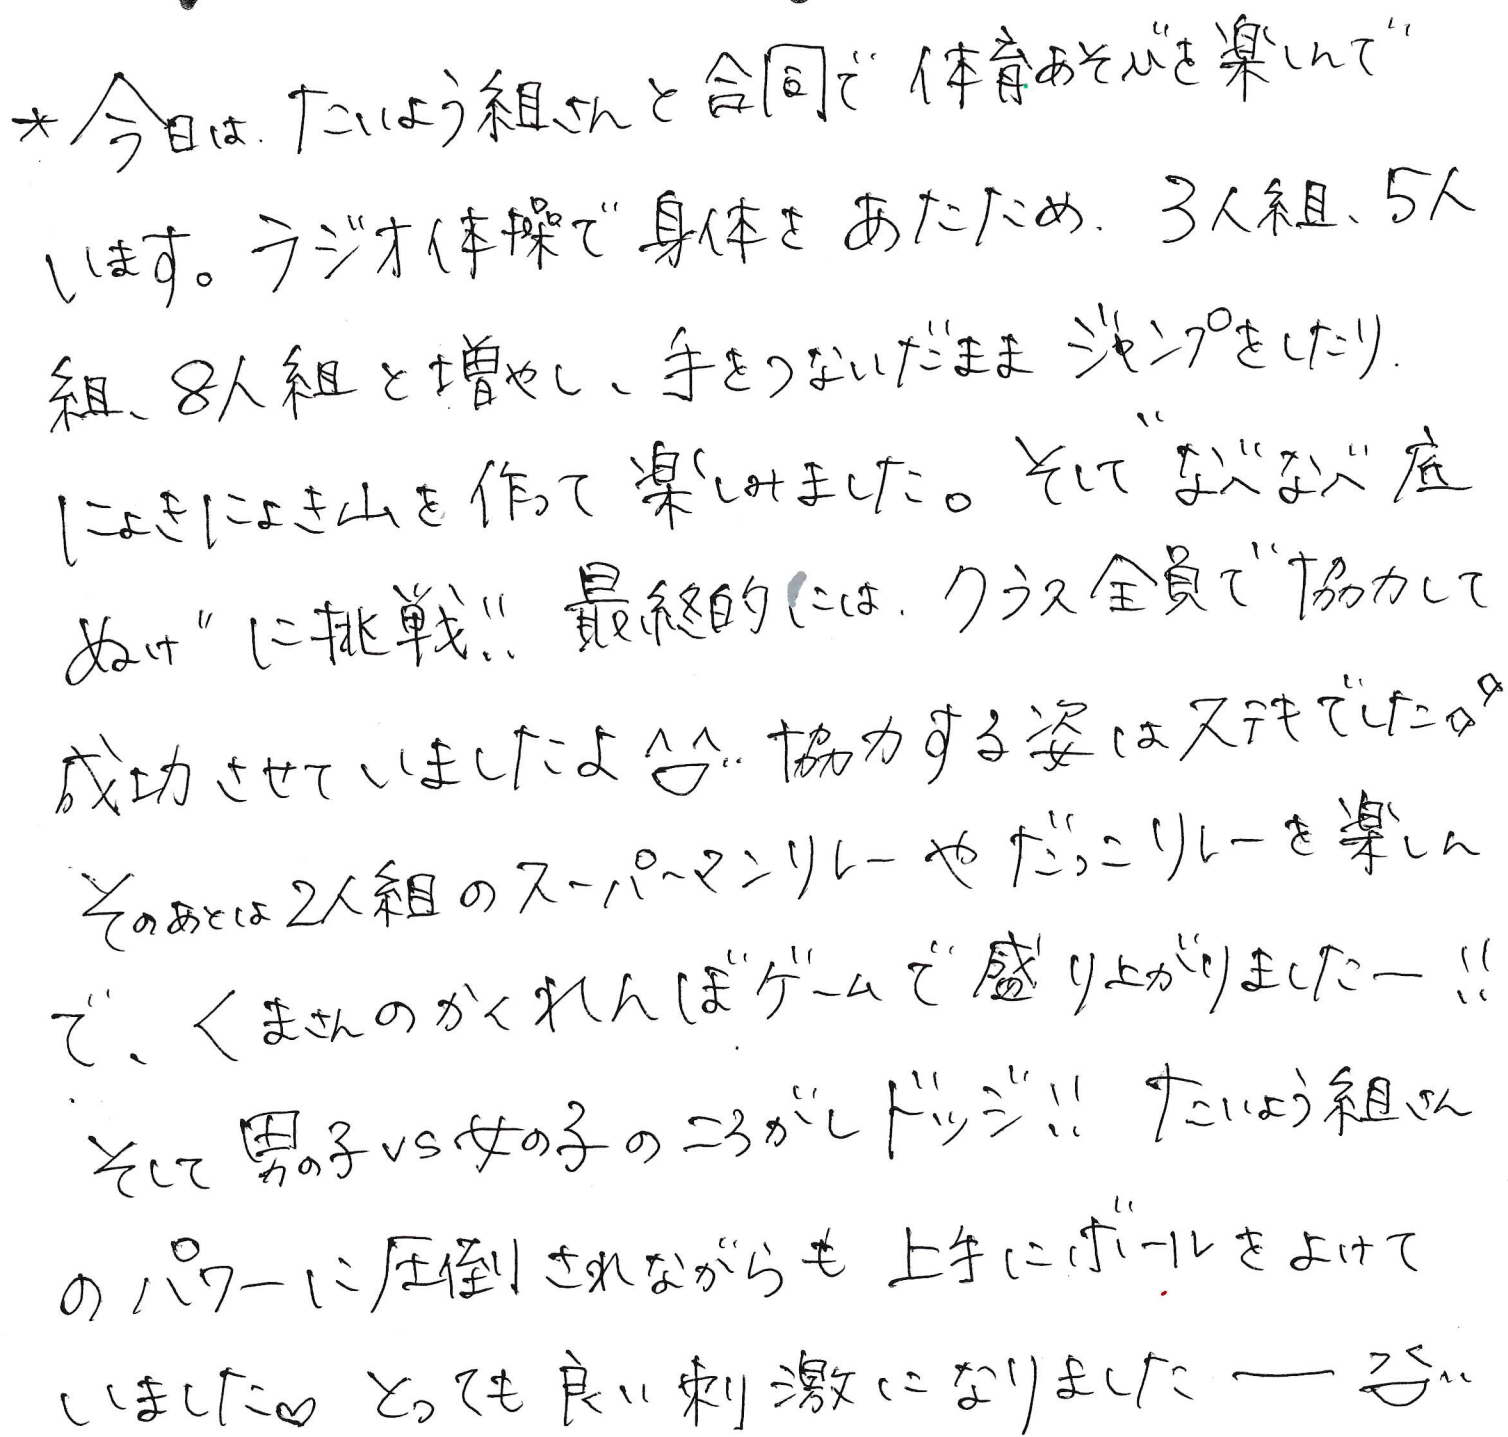 *今日は、たいよう組さんと合同で体育あそびを楽しんで
います。ラジオ体操で身体をあたため、3人組、5人
組、8人組と増やし、手をつないだままジャンプをしたり、
にょきにょき山を作って楽しみました。そして"なべなべ底
ぬけ"に挑戦!! 最終的には、クラス全員で協力して
成功させていましたよ^^ 協力する姿はステキでした。
そのあとは2人組のスーパーマンリレーやだっこリレーを楽しん
で、くまさんのかくれんぼゲームで盛り上がりましたー!!
そして男の子vs女の子のころがしドッジ!! たいよう組さん
のパワーに圧倒されながらも上手にボールをよけて
いました♡ とっても良い刺激になりましたー